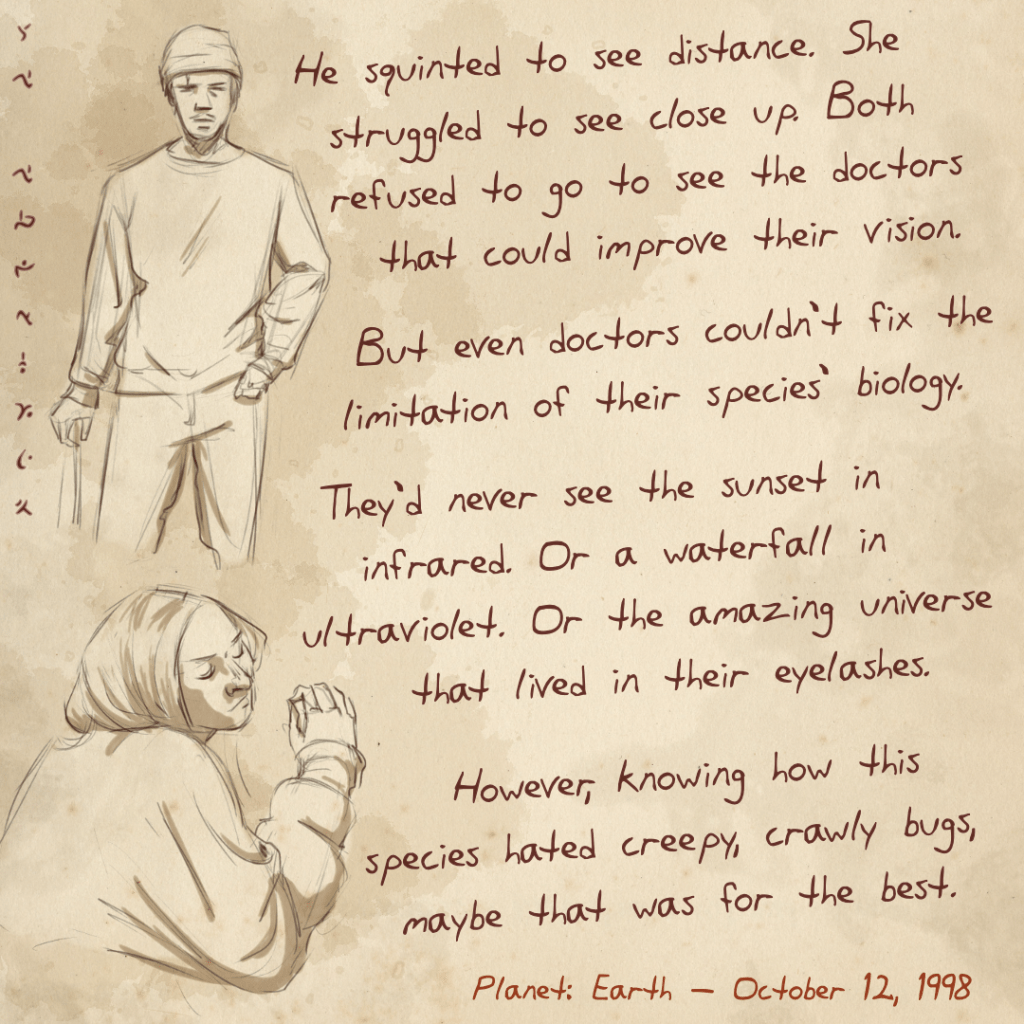 He squinted to see distance. She
struggled to see close up. Both
refused to go to see the doctors
that could improve their vision.
But even doctors couldn't fix the
limitation of their species' biology.
They'd never see the sunset in
infrared. Or a waterfall in
ultraviolet. Or the amazing universe
that lived in their eyelashes.
However, knowing how this
species hated creepy, crawly bugs,
maybe that was for the best.
Planet: Earth — October 12, 1998